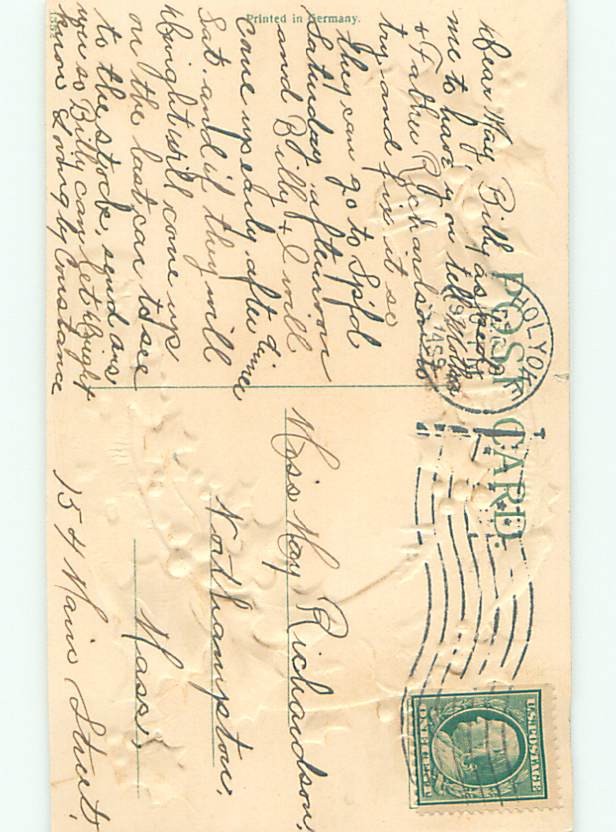 POST CARD.
Printed in Germany.
Dear May, Billy asked
me to have you tell Mother
& Father Richardson to
try and fix it so
they can go to Spfd
Saturday afternoon
and Billy & I will
come up early after dinner
Sat. and if they will
Dwight will come up
on the last car to see
to the stock, send ans
you so Billy can let Dwight
know Lovingly Constance
HOLYOKE
MASS
Miss May Richardson,
Northampton,
Mass.
154 Main Street.
U.S. POSTAGE
ONE CENT